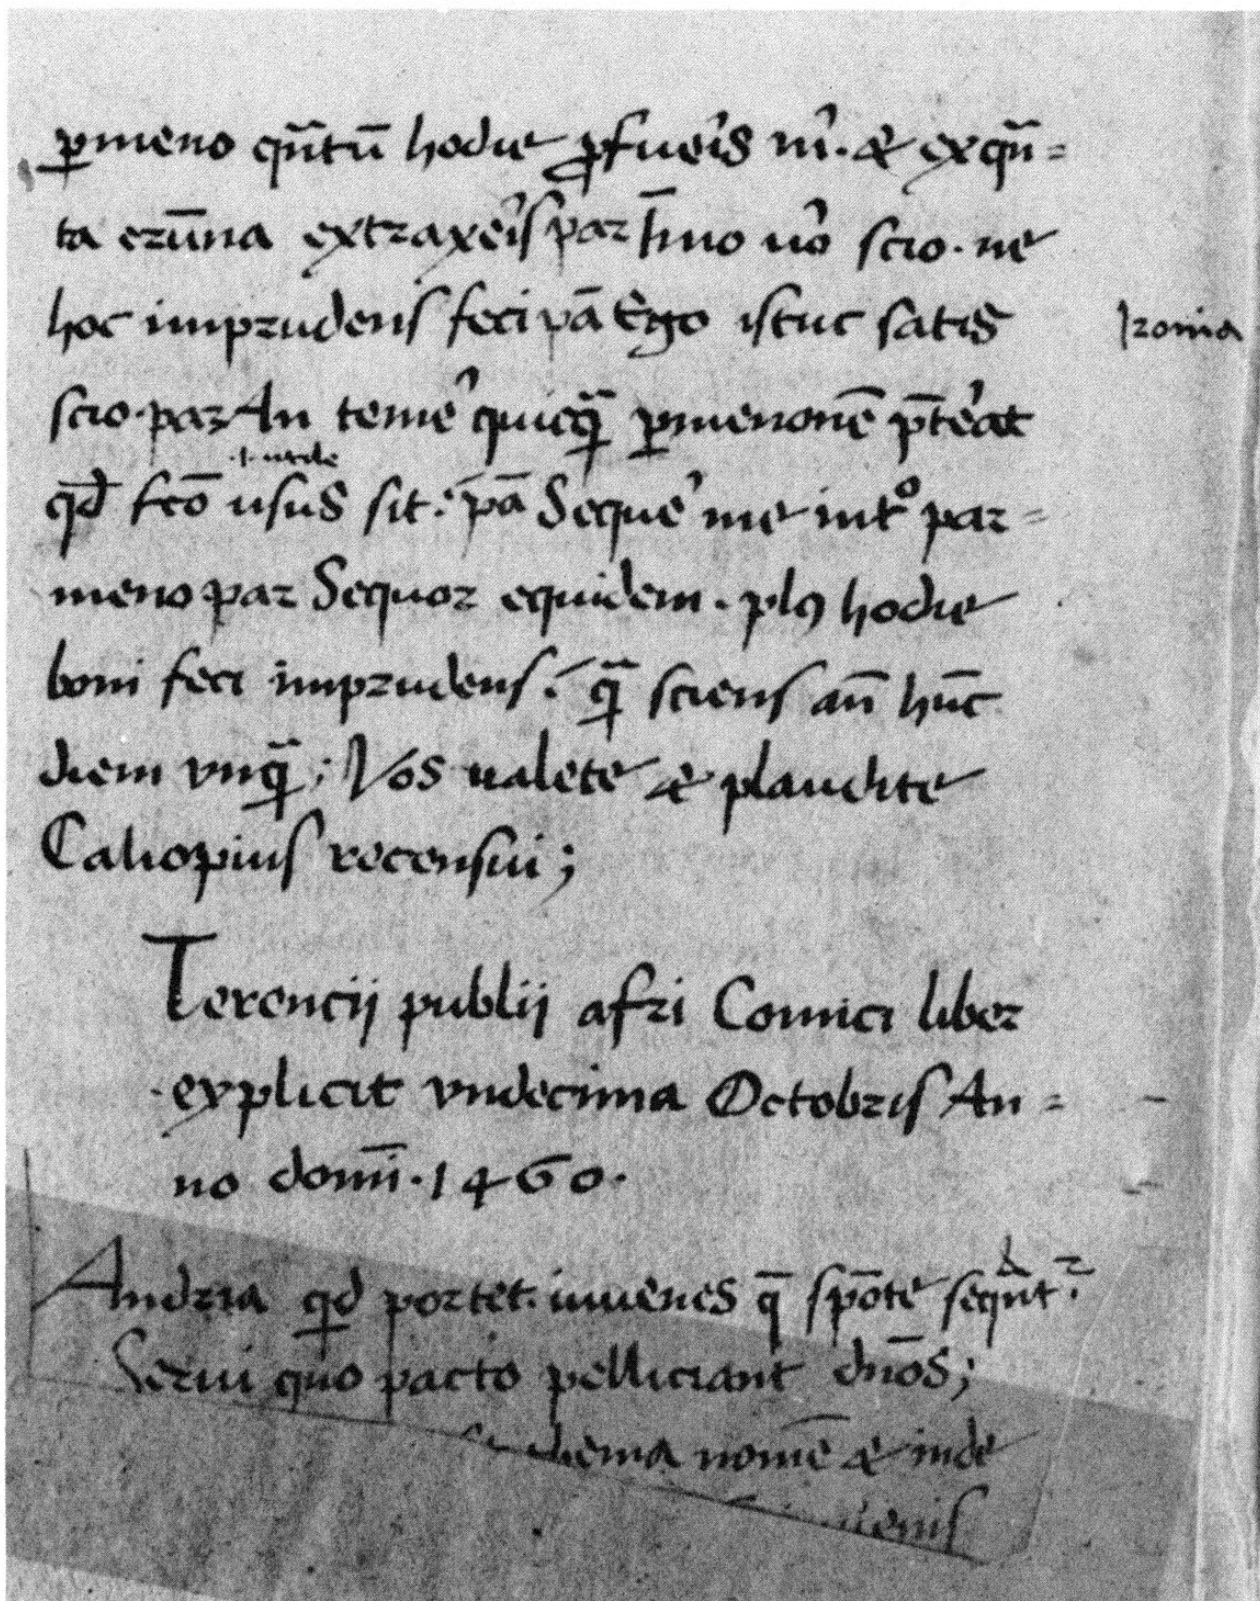 ꝑmeno qñtū hodie ꝓfueis m̄. & ex qñ=
ta erūna extraxeis par Īmo uo scio. ne
hoc imprudens feci pā Ego istuc satis
Ironia
scio. par An teme quicꝗ̄ ꝑmenonē p̄teat
.i. utile
qd̄ fcō usus sit. pā Seque me int° par=
meno par Sequor equidem. plꝰ hodie
boni feci imprudens. ꝗ̄ sciens an̄ hūc
diem vnꝗ̄; Vos ualete & plaudite
Caliopius recensui;
Terencij publij afri Comici liber
explicit vndecima Octobris An=
no domī. 1460.
Andria qd portet. iuuenes q̄ spōte sequāt
Serui quo pacto pelliciant dn̄os;
nomē & inde